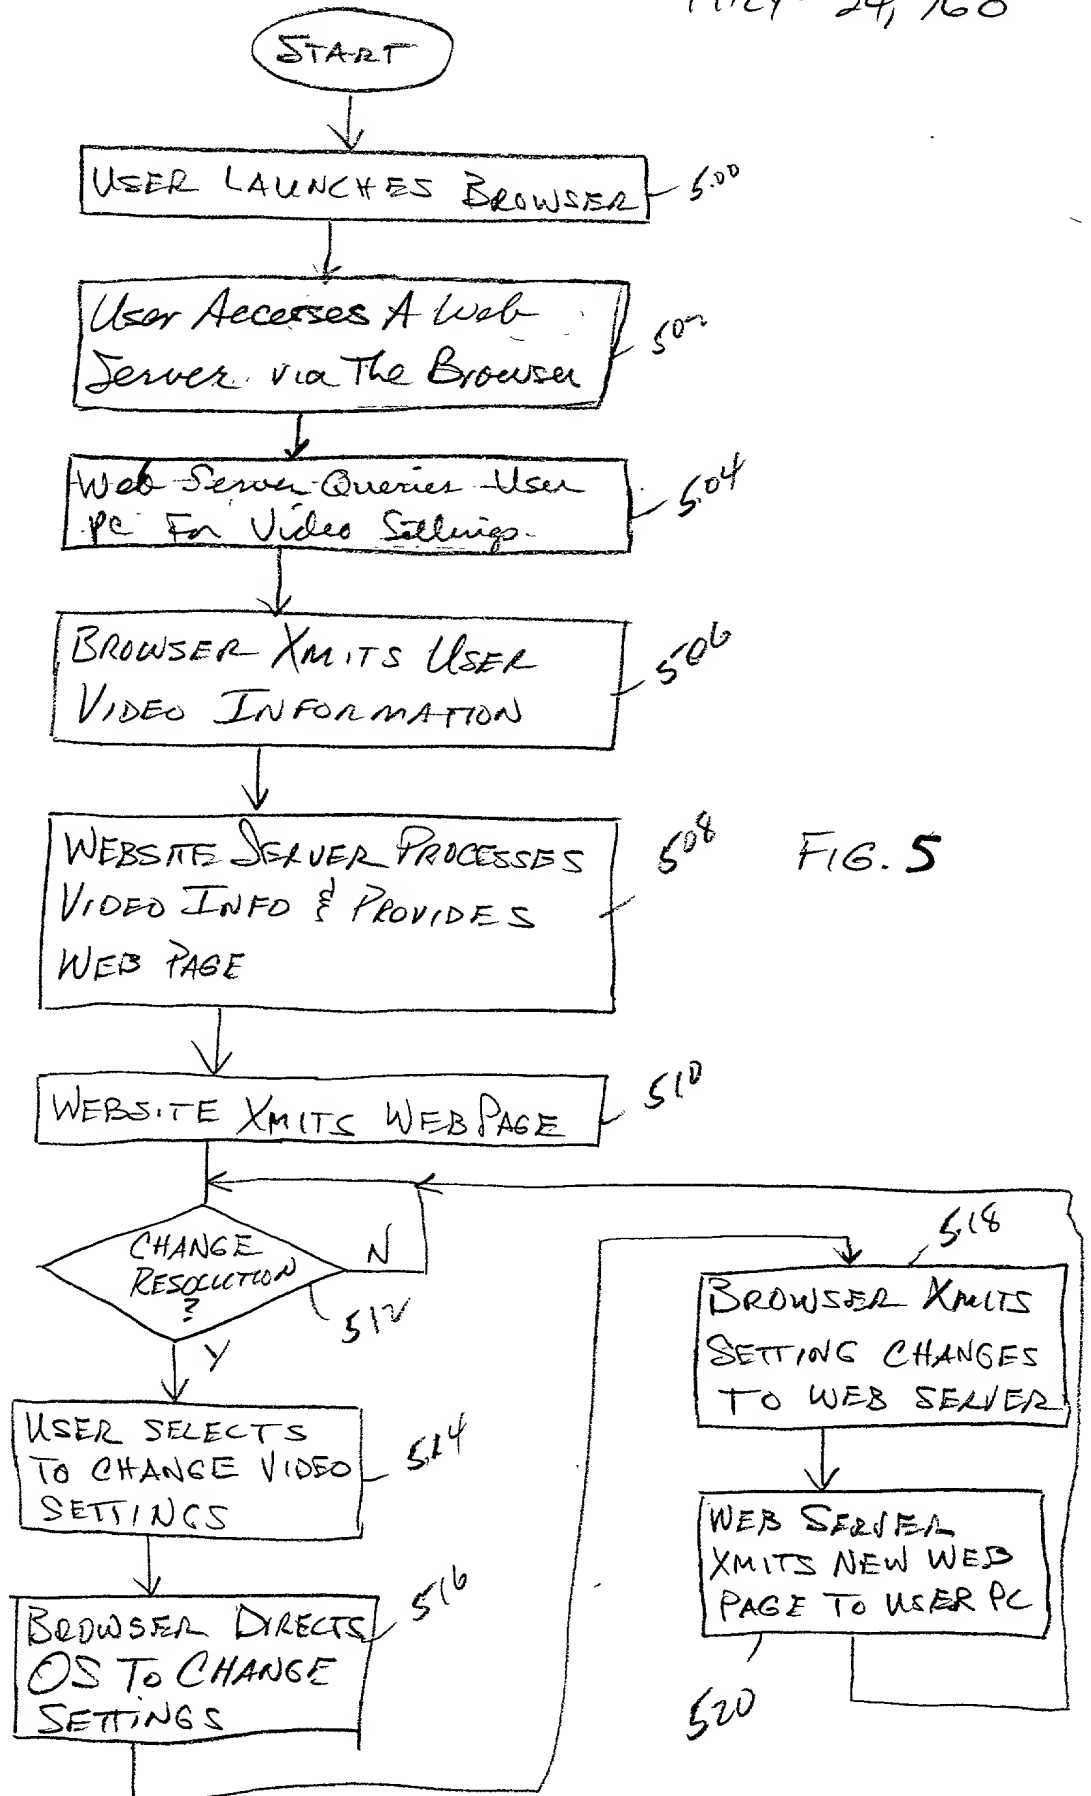 24, 160
START
USER LAUNCHES BROWSER
500
User Accesses A Web
Server via The Browser
502
Web Server Queries User
PC For Video Settings.
504
BROWSER XMITS USER
VIDEO INFORMATION
506
WEBSITE SERVER PROCESSES
VIDEO INFO & PROVIDES
WEB PAGE
508
FIG. 5
WEBSITE XMITS WEB PAGE
510
CHANGE
RESOLUTION
?
N
512
Y
USER SELECTS
TO CHANGE VIDEO
SETTINGS
514
BROWSER DIRECTS
OS TO CHANGE
SETTINGS
516
518
BROWSER XMITS
SETTING CHANGES
TO WEB SERVER
WEB SERVER
XMITS NEW WEB
PAGE TO USER PC
520